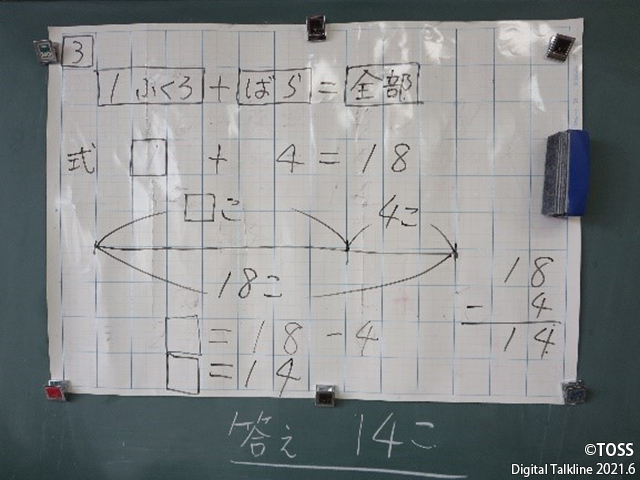 3
1ふくろ + ばら = 全部
式 □ + 4 = 18
□こ 4こ
18こ
□ = 18 - 4
□ = 14
18
- 4
14
答え 14こ
©TOSS
Digital Talkline 2021.6